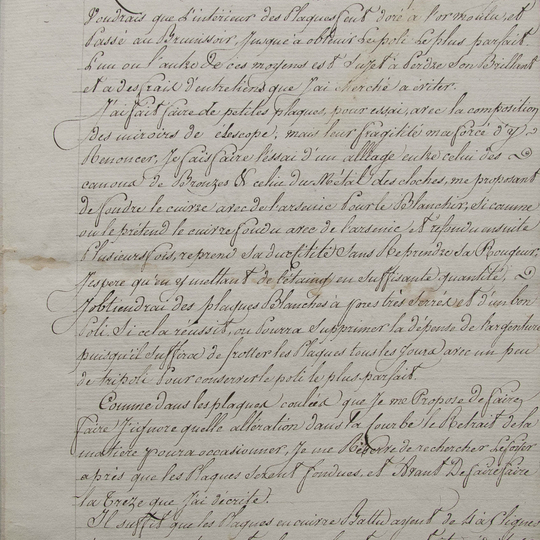 Voudrais que L'intérieur des Plaques feut doré a l'or moulu, et
Passé au Brunissoir, Jusque a obtenir Le poli Le plus parfait.
L'un ou l'autre de ces moyens est Sujet à Perdre Son Brillant
et a des frais d'entretiens que J'ai cherché a eviter.
J'ai fait faire de petites plaques, pour essai, avec la composition
des miroirs de telescope, mais leur fragilité m'a forcé d'y
Renoncer, Je fais faire l'essai d'un alliage entre celui des
canons de Bronzes & celui du Métal des cloches, me proposant
de fondre le cuivre avec de l'arsenic Pour le Blanchir, Si comme
on le prétend le cuivre fondu avec de l'arsenic et refondu ensuite
Plusieurs fois, reprend Sa ductilité Sans Reprendre Sa Rougeur,
J'espere qu'en y mettant de l'étaing en Suffisante quantité,
J'obtiendrai des plaques Blanches à très Serrés et d'un bon
Poli Si cela réussit, on Pourra Supprimer la dépense de l'argenture
puisqu'il Suffira de frotter les Plaques tous les Jours avec un peu
de tripoli Pour conserver le poli le plus parfait.
Comme dans les plaques coulées que Je me Propose de faire
faire J'ignore quelle altération dans la Courbe le Retrait de la
matière pourra occasionner, Je me de rechercher Le foyer
après que les Plaques Seront fondues, et Avant De faire faire
la que J'ai décrite.
Il Suffit que les Plaques en cuivre Battu ayent de 4 à lignes